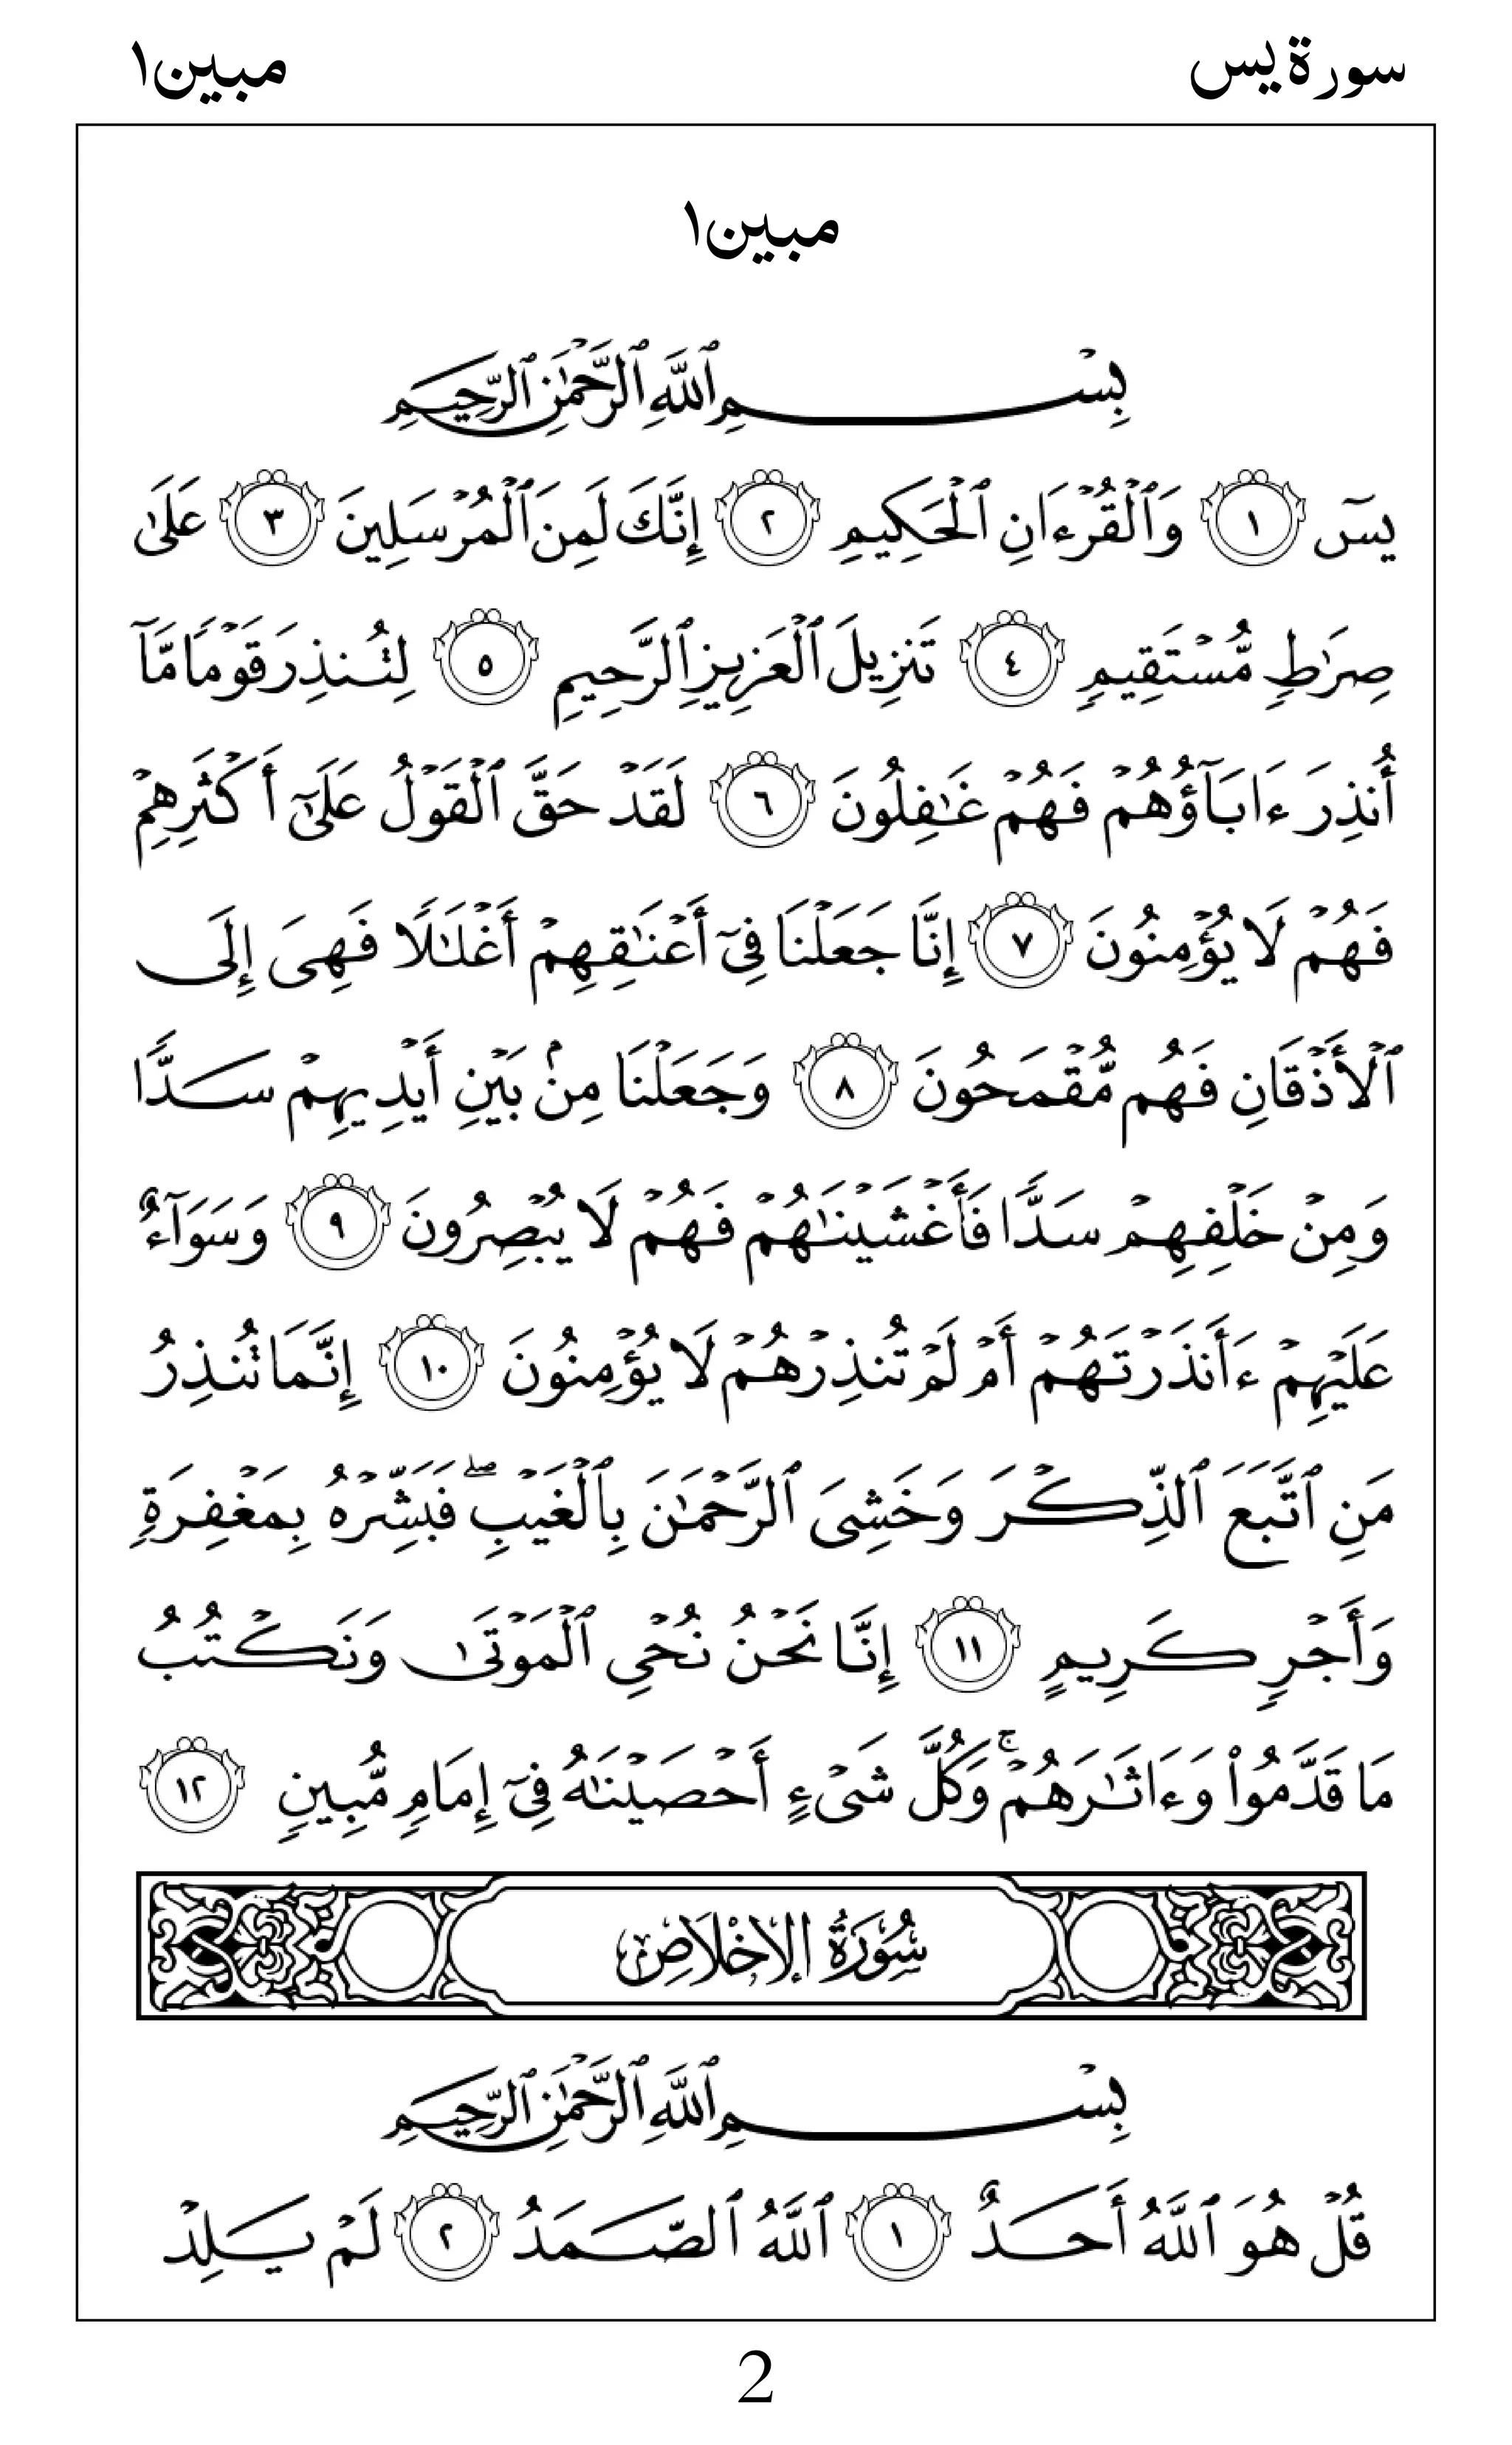 سورة يس
مبين١
مبين١
بِسْمِ ٱللَّهِ ٱلرَّحْمَٰنِ ٱلرَّحِيمِ
يسٓ ١ وَٱلْقُرْءَانِ ٱلْحَكِيمِ ٢ إِنَّكَ لَمِنَ ٱلْمُرْسَلِينَ ٣ عَلَىٰ
صِرَٰطٍ مُّسْتَقِيمٍ ٤ تَنزِيلَ ٱلْعَزِيزِ ٱلرَّحِيمِ ٥ لِتُنذِرَ قَوْمًا مَّآ
أُنذِرَ ءَابَآؤُهُمْ فَهُمْ غَٰفِلُونَ ٦ لَقَدْ حَقَّ ٱلْقَوْلُ عَلَىٰٓ أَكْثَرِهِمْ
فَهُمْ لَا يُؤْمِنُونَ ٧ إِنَّا جَعَلْنَا فِىٓ أَعْنَٰقِهِمْ أَغْلَٰلًا فَهِىَ إِلَى
ٱلْأَذْقَانِ فَهُم مُّقْمَحُونَ ٨ وَجَعَلْنَا مِنۢ بَيْنِ أَيْدِيهِمْ سَدًّا
وَمِنْ خَلْفِهِمْ سَدًّا فَأَغْشَيْنَٰهُمْ فَهُمْ لَا يُبْصِرُونَ ٩ وَسَوَآءٌ
عَلَيْهِمْ ءَأَنذَرْتَهُمْ أَمْ لَمْ تُنذِرْهُمْ لَا يُؤْمِنُونَ ١٠ إِنَّمَا تُنذِرُ
مَنِ ٱتَّبَعَ ٱلذِّكْرَ وَخَشِىَ ٱلرَّحْمَٰنَ بِٱلْغَيْبِ ۖ فَبَشِّرْهُ بِمَغْفِرَةٍ
وَأَجْرٍ كَرِيمٍ ١١ إِنَّا نَحْنُ نُحْىِ ٱلْمَوْتَىٰ وَنَكْتُبُ
مَا قَدَّمُوا۟ وَءَاثَٰرَهُمْ ۚ وَكُلَّ شَىْءٍ أَحْصَيْنَٰهُ فِىٓ إِمَامٍ مُّبِينٍ ١٢
سُورَةُ الإِخْلَاصِ
بِسْمِ ٱللَّهِ ٱلرَّحْمَٰنِ ٱلرَّحِيمِ
قُلْ هُوَ ٱللَّهُ أَحَدٌ ١ ٱللَّهُ ٱلصَّمَدُ ٢ لَمْ يَلِدْ
2